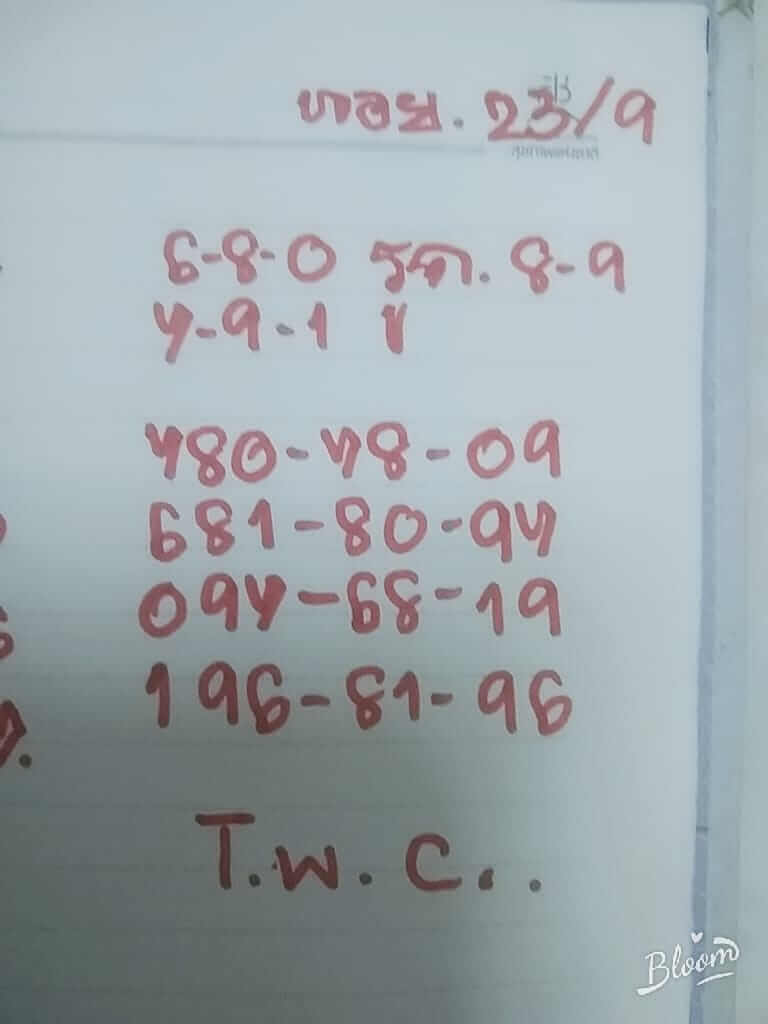 23/9
6-8-0 รูด. 8-9
7-9-1
780-78-09
681-80-97
097-68-19
196-81-96
T.W.C..
Bloom